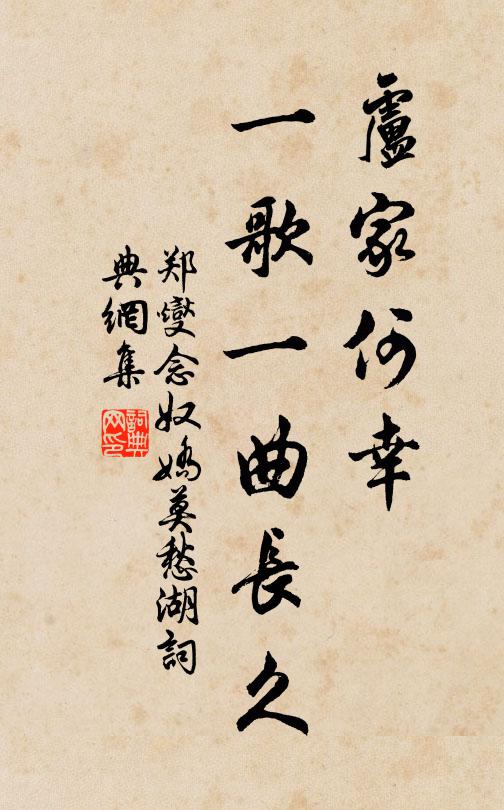 盧家何幸
一歌一曲長久
郑燮念奴嬌莫愁湖詞
典網集
詞典網印